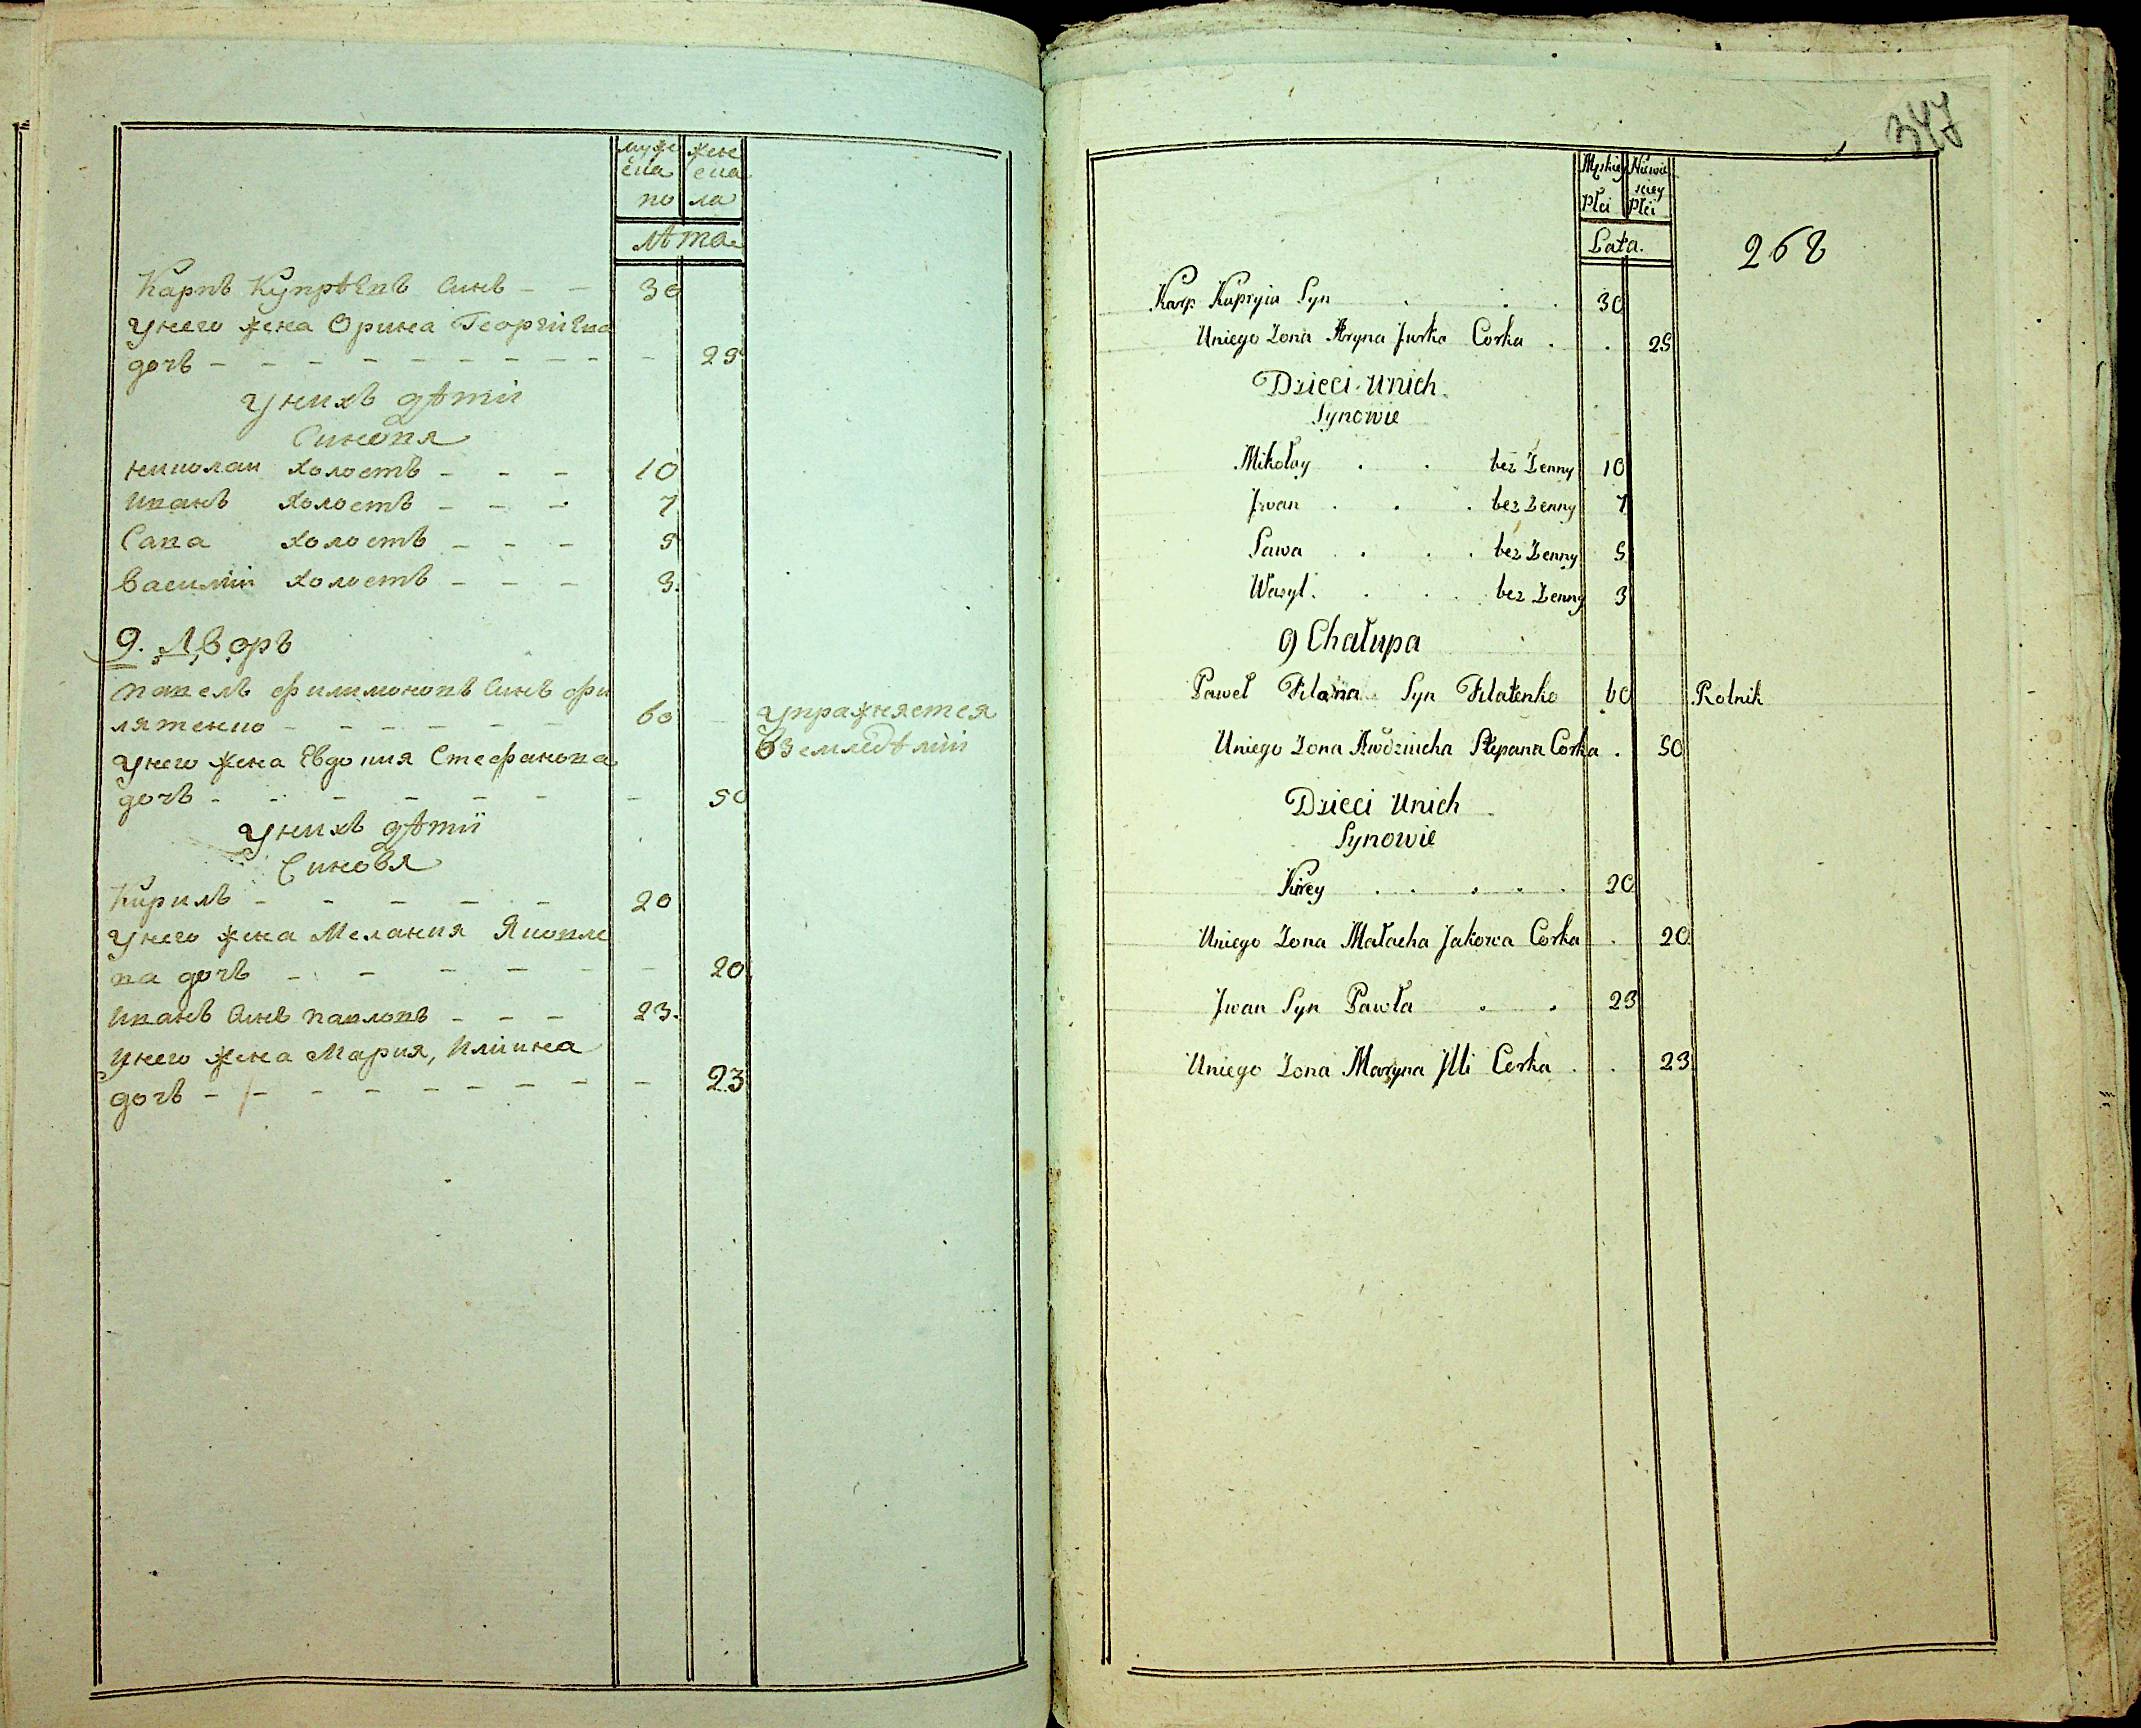 муже жен
ска ска
по ла
лѣта
Карпъ Купрѣевъ синъ – – 30
унего жена Орина Георгіева
дочь – – – – – – – – – 25
унихъ дѣтіи
Синовя
николаи холостъ – – – 10
иванъ холостъ – – – 7
Сава холостъ – – – 5
Василіи холостъ – – – 3.
9. Дворъ
павелъ филимоновъ синъ фи
лятенко – – – – – – 60 упражняется
взємледѣліи
унего жена Евдокия Стефанова
дочь – – – – – – – 50
унихъ дѣтіи
Синовя
Кирилъ – – – – – 20
унего жена Мелания Яковле
ва дочь – – – – – – 20
иванъ синъ павловъ – – – 23.
унего жена Мария, Илиина
дочь – – – – – – – – 23
347
Męskiey Niewie
sciey
Płci Płci
Lata.
268
Karp Kupryia Syn . . . 30
Uniego Żona Aryna Jurka Corka . . 25
Dzieci Unich
Synowie
Mikołay . . bez Żenny 10
Jwan . . . bez Żenny 7
Sawa . . . bez Żenny 5
Wasyl . . . bez Żenny 3
9 Chałupa
Paweł Filona Syn Filatenko 60 Rolnik
Uniego Żona Awdziucha Stepana Corka . 50
Dzieci Unich
Synowie
Kirey . . . . . 20
Uniego Żona Małacha Jakowa Corka . 20
Jwan Syn Pawła . . 23
Uniego Żona Maryna Jlli Corka . . 23